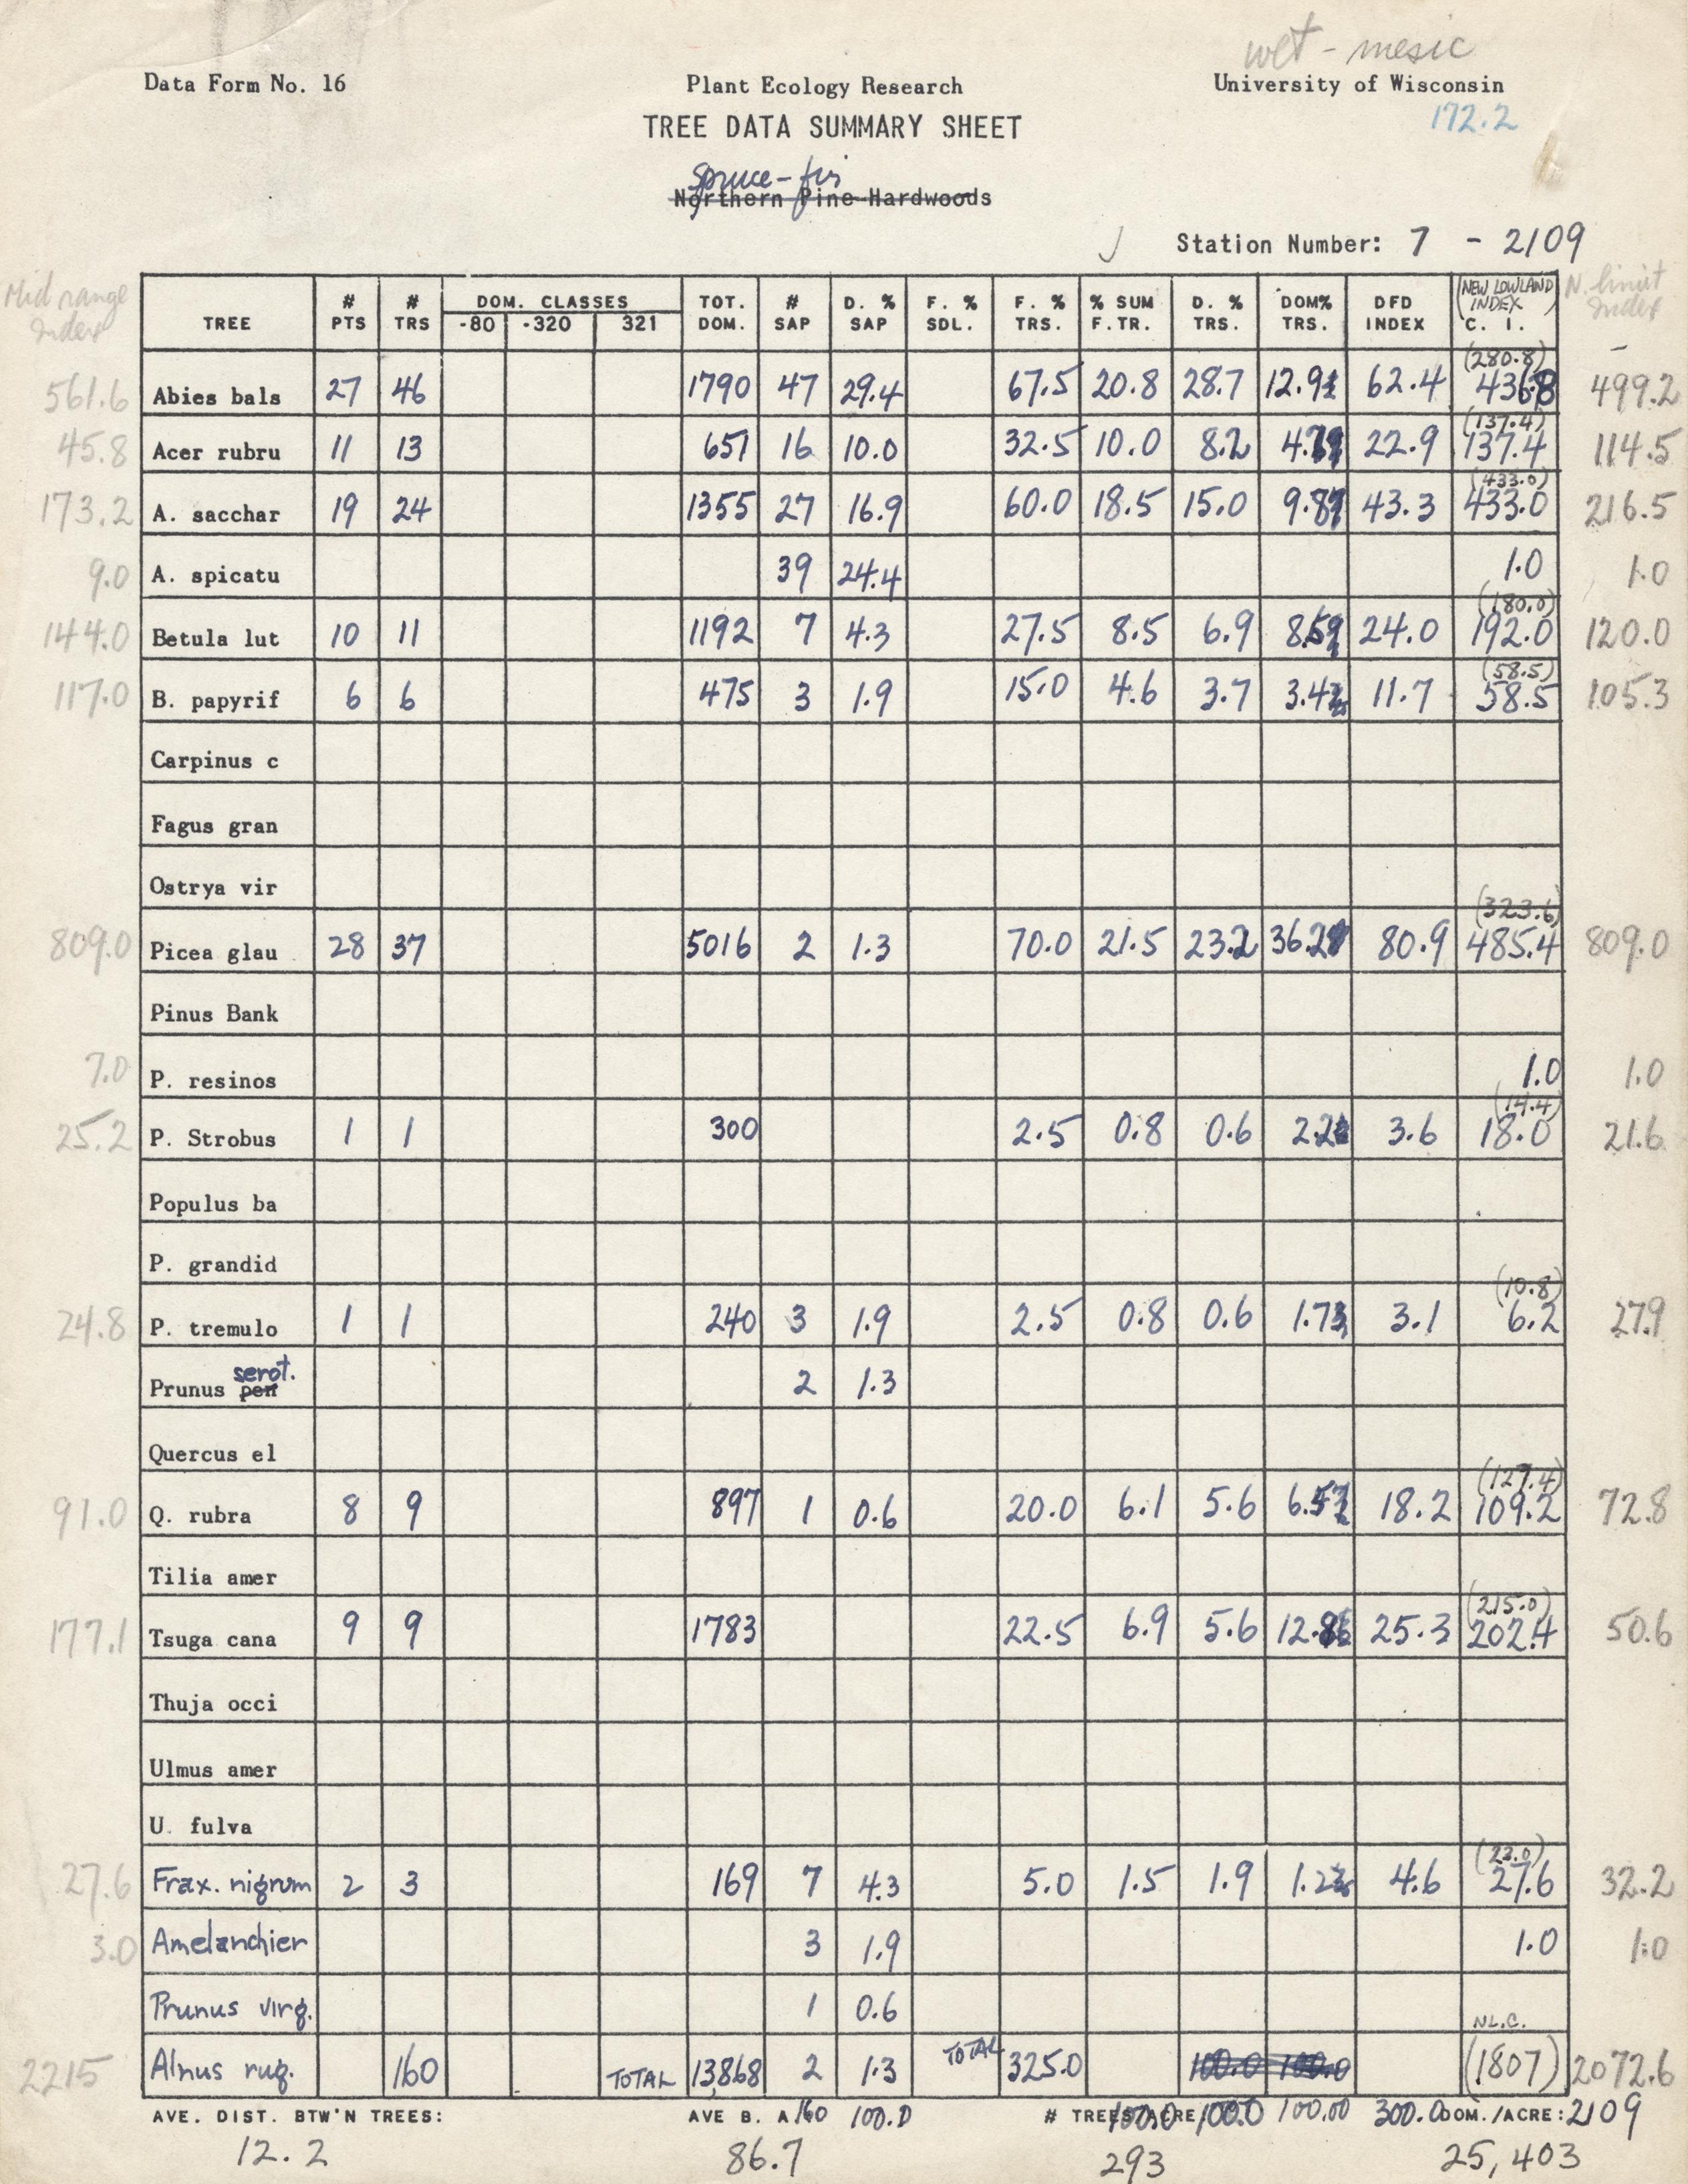 wet - mesic
Data Form No. 16 Plant Ecology Research University of Wisconsin
172.2
TREE DATA SUMMARY SHEET
Spruce-fir
Northern Pine-Hardwoods
Station Number: 7 - 2109
Mid range Index TREE # PTS # TRS DOM. CLASSES -80 -320 321 TOT. DOM. # SAP D. % SAP F. % SDL. F. % TRS. % SUM F. TR. D. % TRS. DOM% TRS. DFD INDEX (NEW LOWLAND INDEX) C. I. N. limit Index
(280.8) -
561.6 Abies bals 27 46 1790 47 29.4 67.5 20.8 28.7 12.9 62.4 436.8 499.2
(137.4)
45.8 Acer rubru 11 13 651 16 10.0 32.5 10.0 8.2 4.7 22.9 137.4 114.5
(433.0)
173.2 A. sacchar 19 24 1355 27 16.9 60.0 18.5 15.0 9.8 43.3 433.0 216.5
9.0 A. spicatu 39 24.4 1.0 1.0
(180.0)
144.0 Betula lut 10 11 1192 7 4.3 27.5 8.5 6.9 8.6 24.0 192.0 120.0
(58.5)
117.0 B. papyrif 6 6 475 3 1.9 15.0 4.6 3.7 3.4 11.7 58.5 105.3
Carpinus c
Fagus gran
Ostrya vir
(323.6)
809.0 Picea glau 28 37 5016 2 1.3 70.0 21.5 23.2 36.2 80.9 485.4 809.0
Pinus Bank
7.0 P. resinos 1.0 1.0
(14.4)
25.2 P. Strobus 1 1 300 2.5 0.8 0.6 2.2 3.6 18.0 21.6
Populus ba
P. grandid
(10.8)
24.8 P. tremulo 1 1 240 3 1.9 2.5 0.8 0.6 1.7 3.1 6.2 27.9
serot.
Prunus pen 2 1.3
Quercus el
(127.4)
91.0 Q. rubra 8 9 897 1 0.6 20.0 6.1 5.6 6.5 18.2 109.2 72.8
Tilia amer
(215.0)
177.1 Tsuga cana 9 9 1783 22.5 6.9 5.6 12.8 25.3 202.4 50.6
Thuja occi
Ulmus amer
U. fulva
(23.0)
27.6 Frax. nigrum 2 3 169 7 4.3 5.0 1.5 1.9 1.2 4.6 27.6 32.2
3.0 Amelanchier 3 1.9 1.0 1.0
Prunus virg. 1 0.6
NL.C.
2215 Alnus rug. 160 TOTAL 13,868 2 1.3 TOTAL 325.0 100.0 100.0 (1807) 2072.6
AVE. DIST. BTW'N TREES: AVE B. A 160 100.0 # TREES/ACRE 100.0 100.0 100.00 300.0 DOM./ACRE: 2109
12.2 86.7 293 25,403